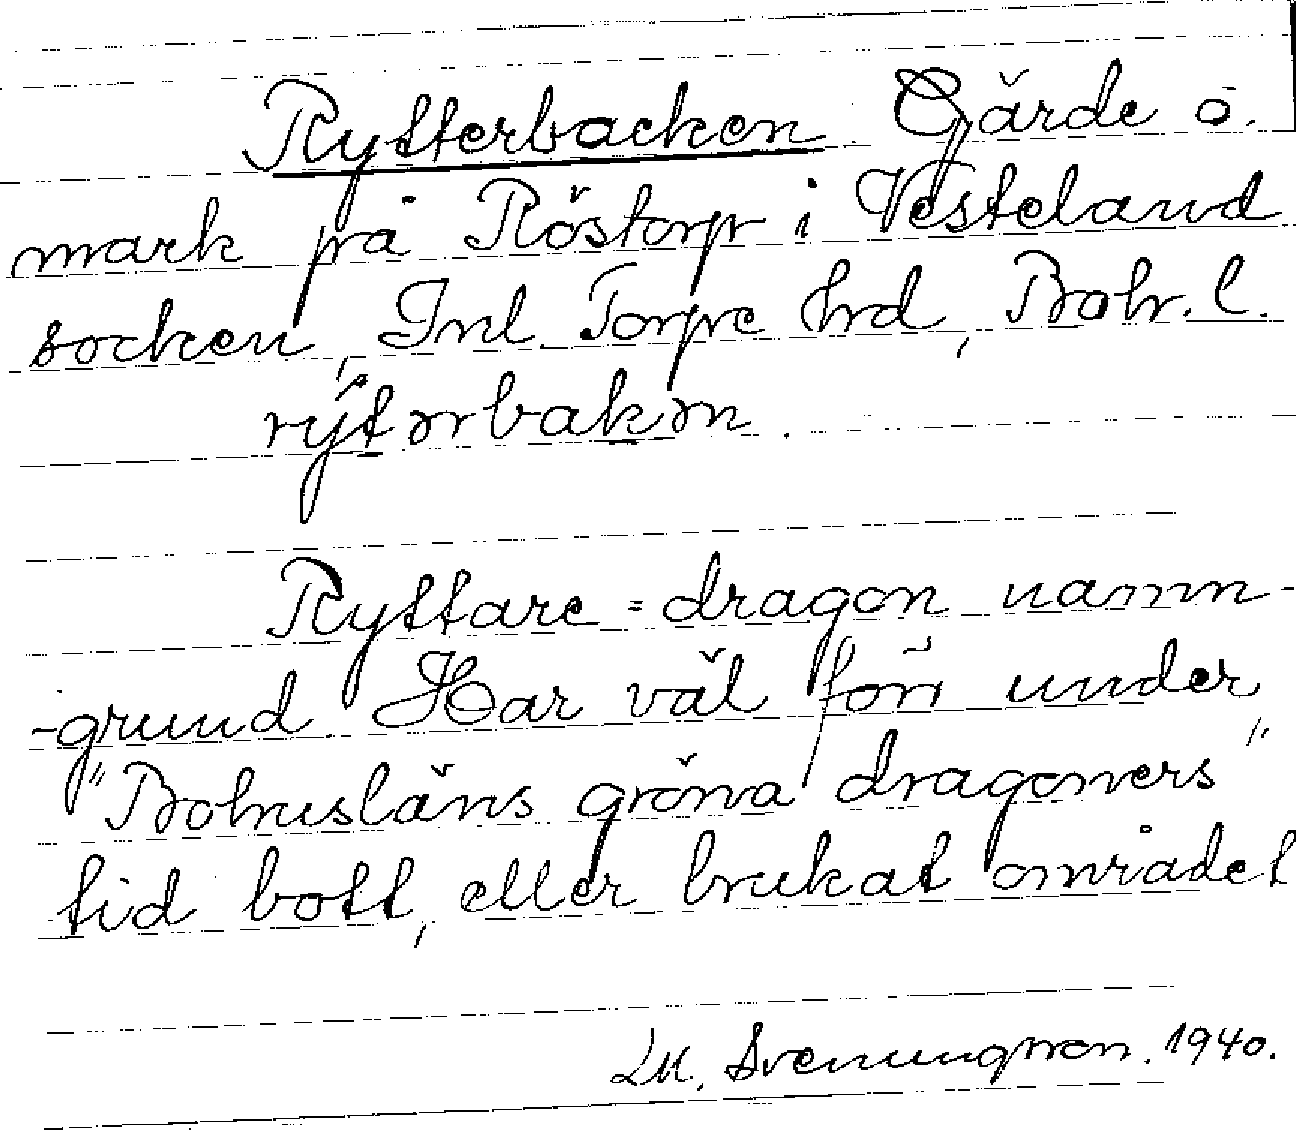 Rytterbacken. Gärde o.
mark på Röstorp i Vesteland
socken, Inl. Torpe hrd, Bohr. l.
rýtərbakən.
Ryttare = dragon namn-
-grund. Har väl förr under
"Bohusläns gröna dragoners"
tid bott, eller brukat området
LM. Svenungsson. 1940.